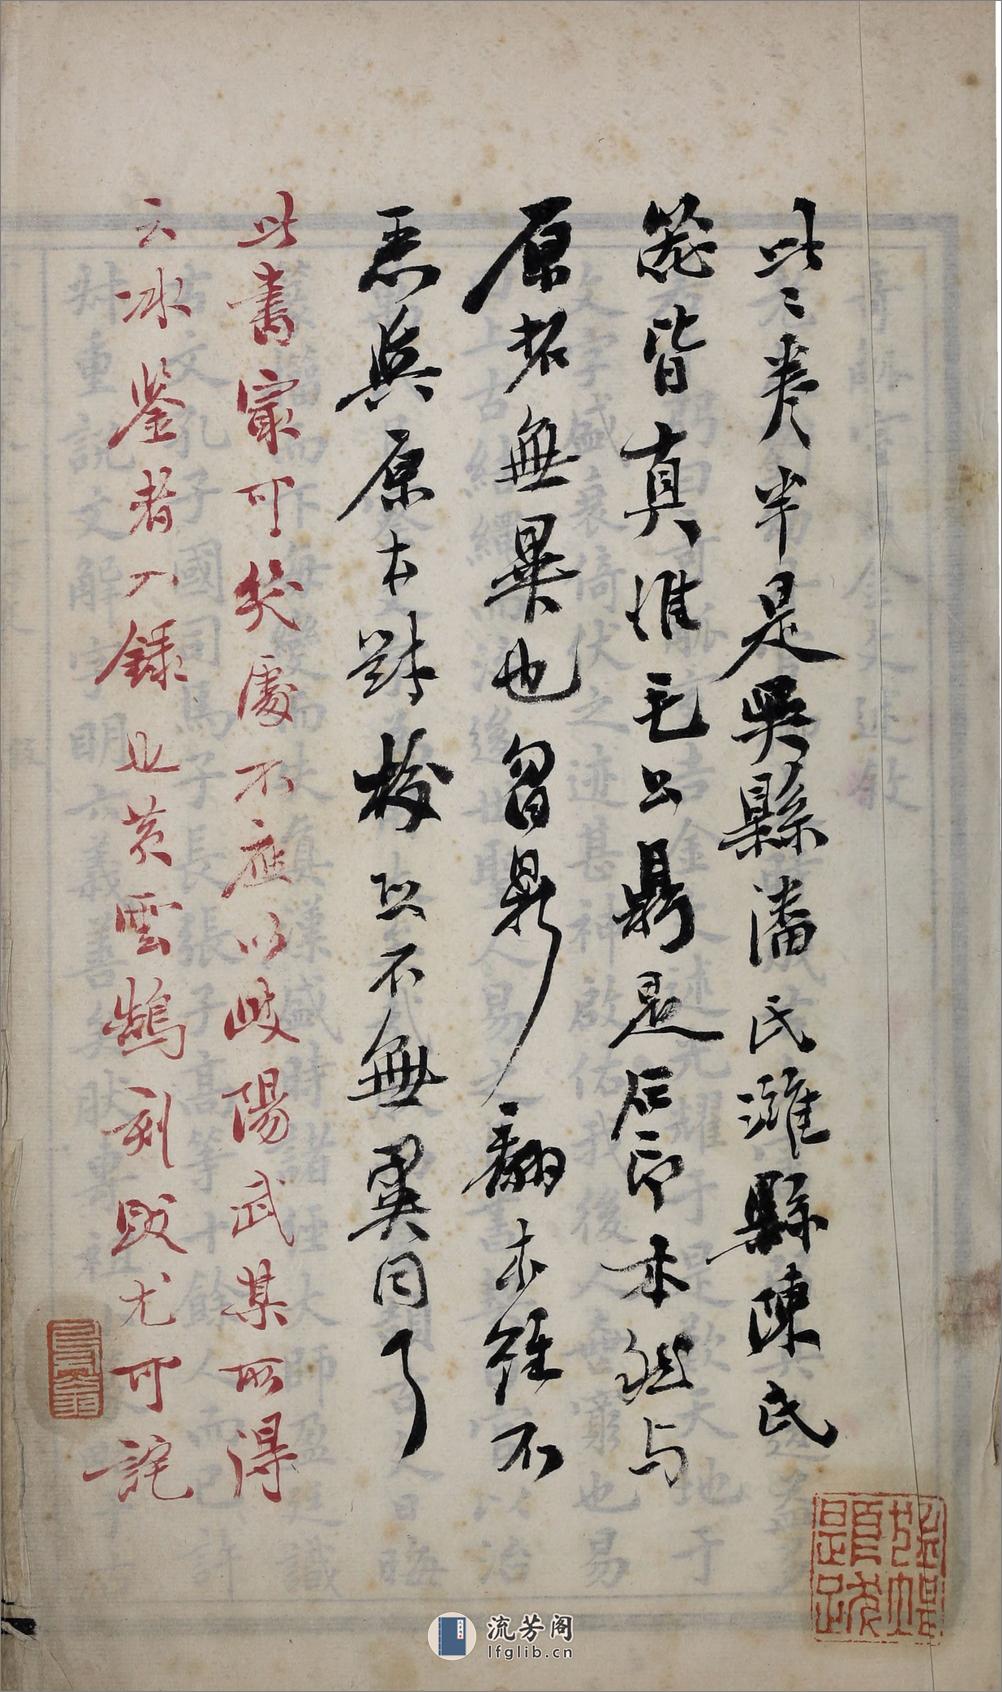 此二卷半是吳縣潘氏濰縣陳氏
器皆真惟毛公鼎是石印本然与
原拓無異也曶鼎翻本雖不
惡與原本對校不無異同
此書最可笑處不應以岐陽武某所得
云冰鑒者入錄也黃雲鵠刻跋尤可詫
流芳阁
lfglib.cn